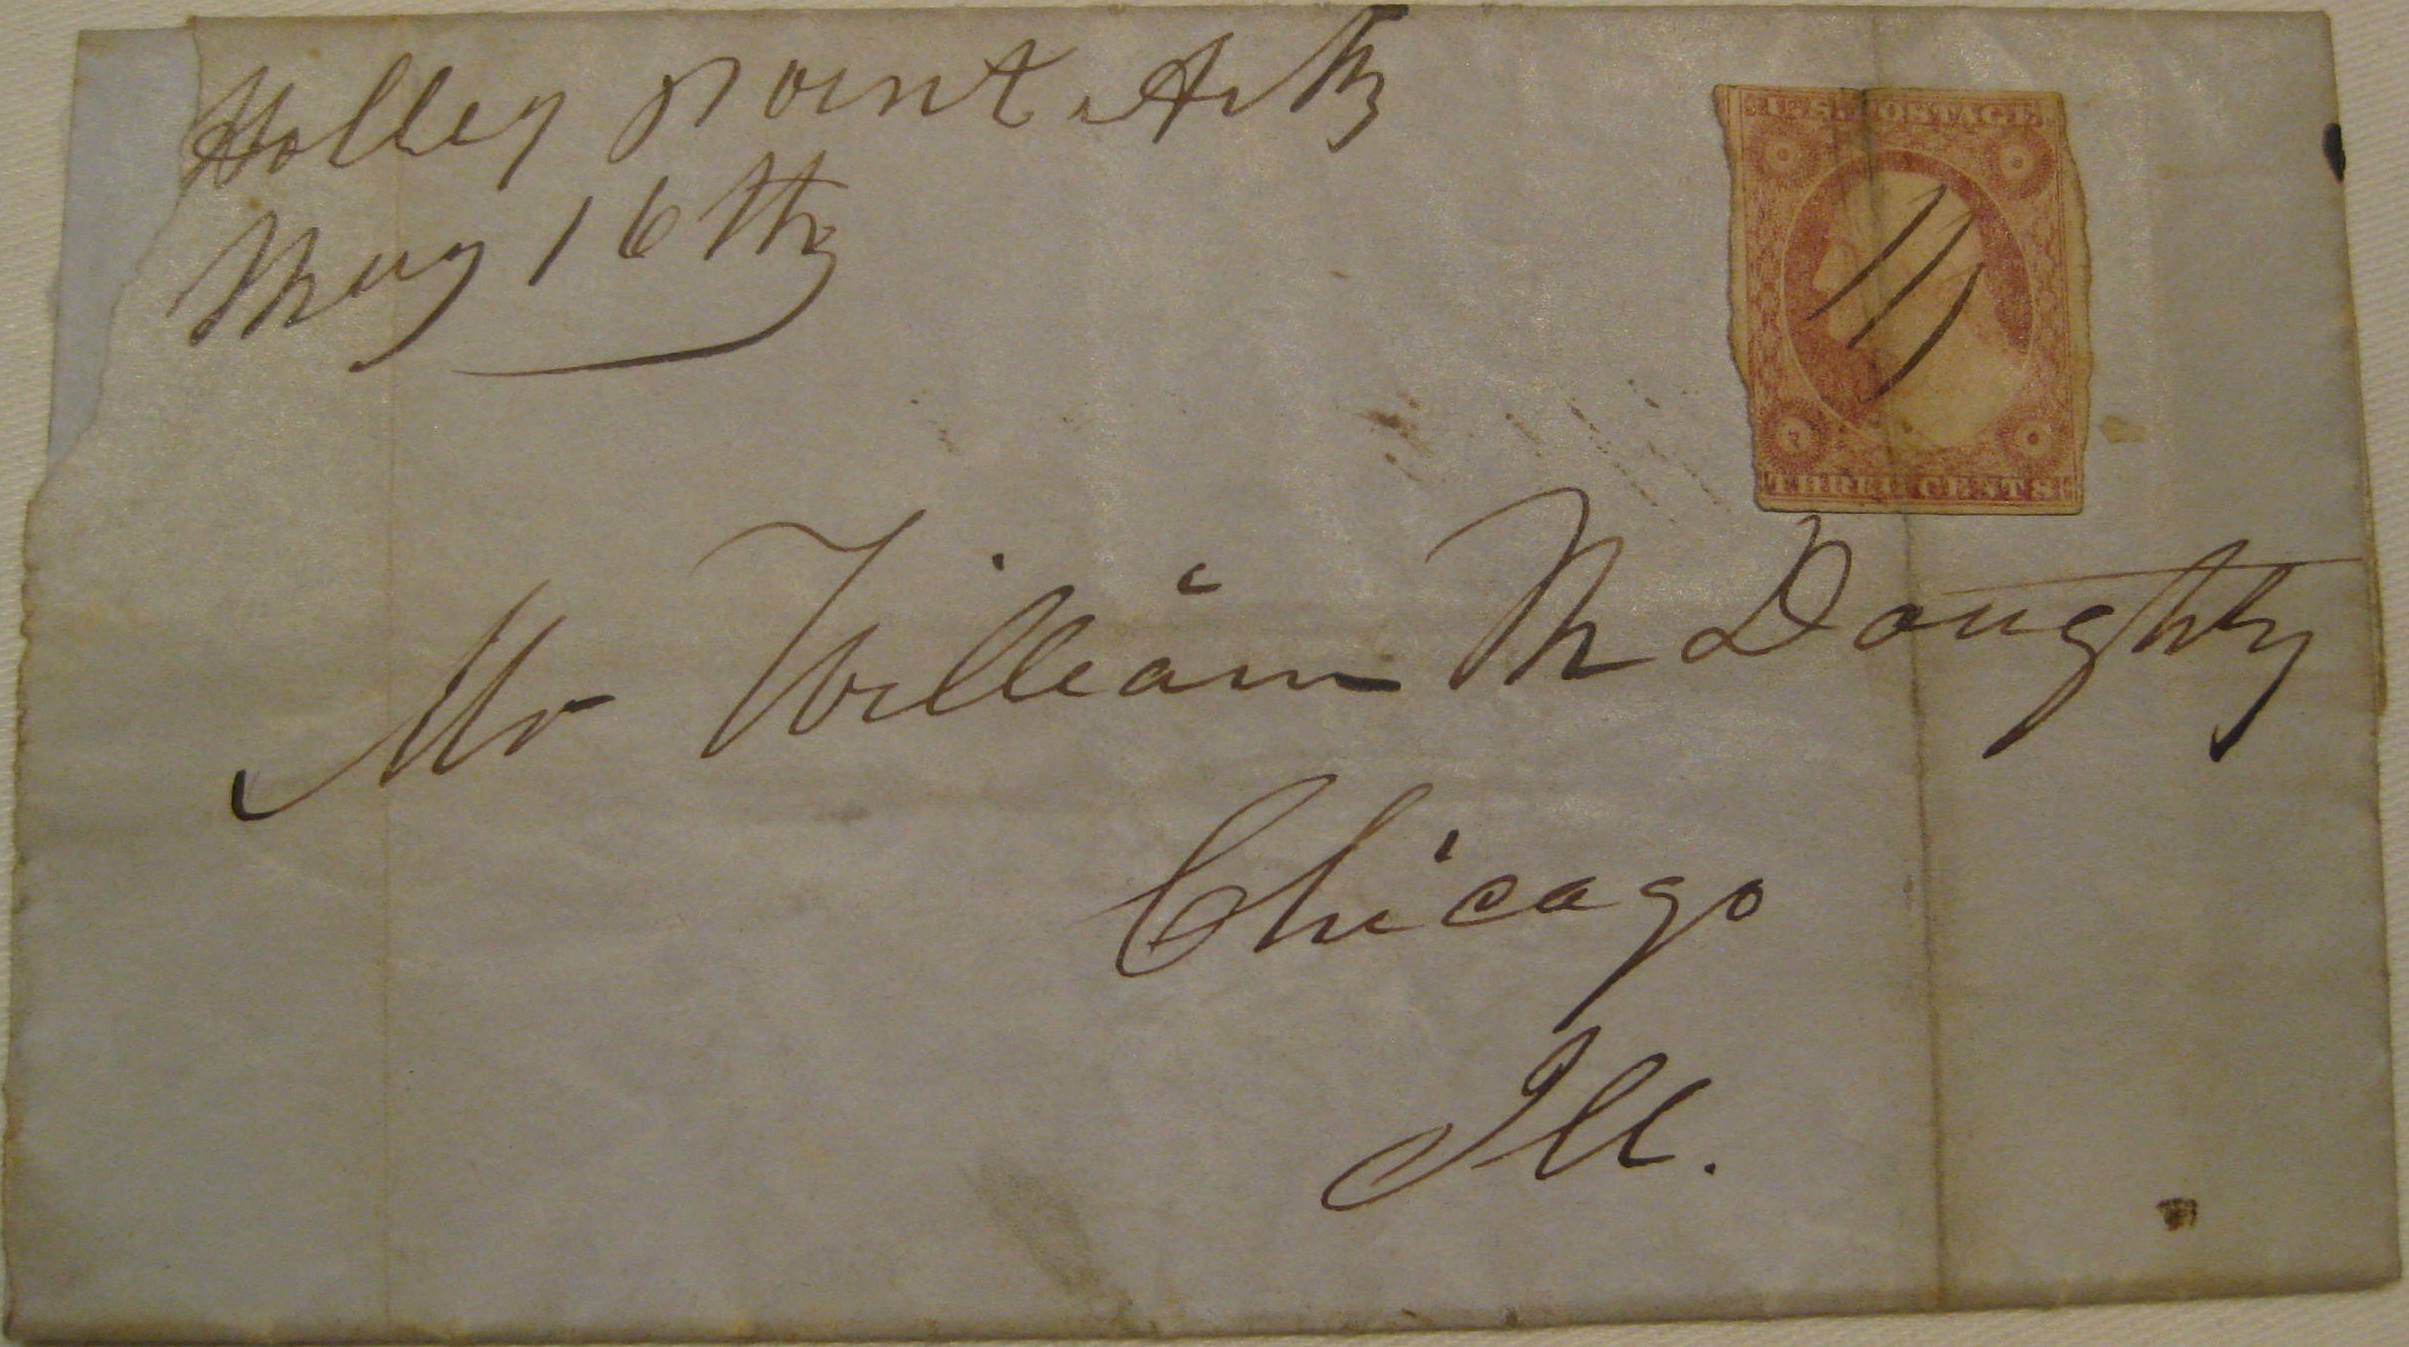 Holley point Arks
May 16th
U.S. POSTAGE
THREE CENTS
Mr William M Doughty
Chicago
Ill.